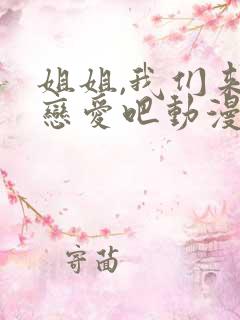 姐姐,我们来
戀愛吧動漫
寄